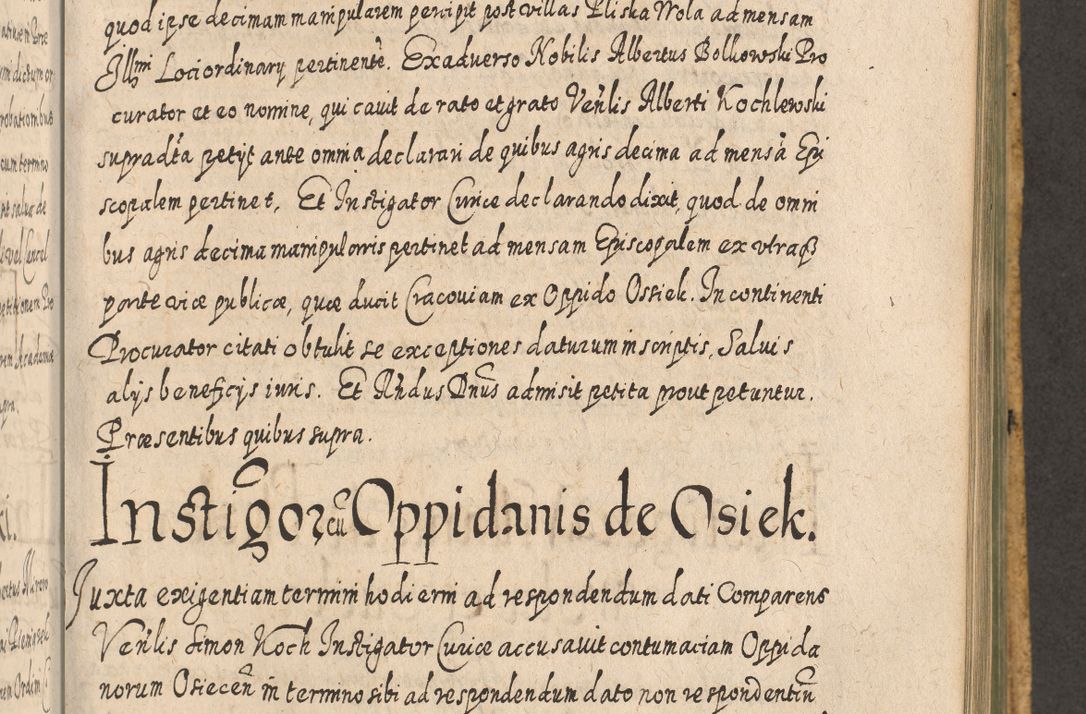 quod ipse decimam manipularem percipit post villas Pliska Wola ad mensam
Illmi Loci ordinary pertinente. Ex adverso Nobilis Albertus Bolkowski Pro
curator et eo nomine, qui cavit de rato et grato Venlis Alberti Kochlewski
supradta petijt ante omnia declarari de quibus agris decima ad mensã Epi
scopalem pertinet, Et Instigator Curiæ declarando dixit, quod de omni
bus agris decima manipularis pertinet ad mensam Episcopalem ex utraqß
parte viæ publicæ, quæ ducit Cracoviam ex Oppido Ossiek. In continenti
Procurator citati obtulit se exceptiones daturum in scriptis, Salvis
alijs beneficijs iuris. Et Rndus Dnus admisit petita prout petuntur.
Præsentibus quibus supra.
Instigor cũ Oppidanis de Osiek.
Juxta exigentiam termini hodierni ad respondendum dati Comparens
Venlis Simon Koch Instigator Curiæ accusavit contumaciam Oppida
norum Osiecen in termino sibi ad respondendum dato non respondentiũ